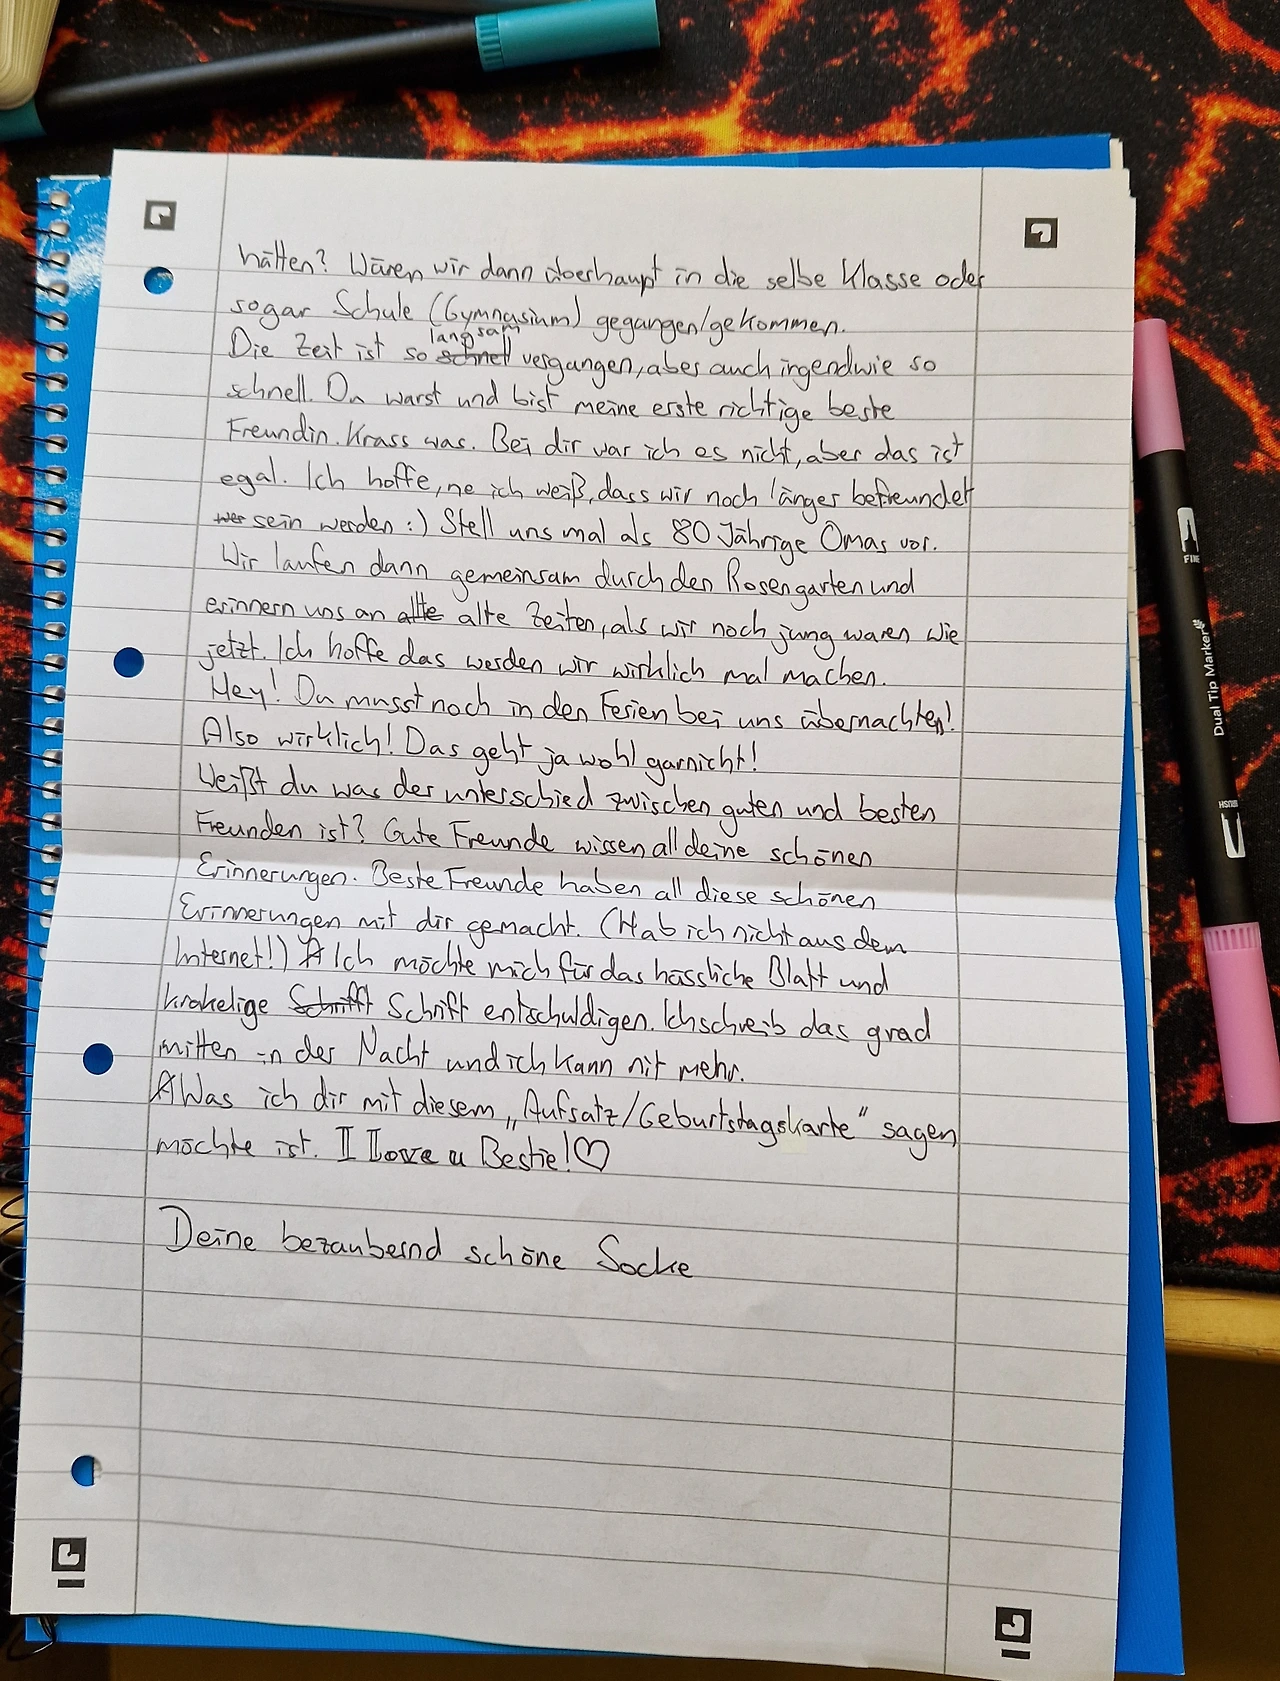 hätten? Wären wir dann überhaupt in die selbe Klasse oder
sogar Schule (Gymnasium) gegangen/gekommen.
langsam
Die Zeit ist so schnell vergangen, aber auch irgendwie so
schnell. Du warst und bist meine erste richtige beste
Freundin. Krass was. Bei dir war ich es nicht, aber das ist
egal. Ich hoffe, ne ich weiß, dass wir noch länger befreundet
wer sein werden :) Stell uns mal als 80 Jährige Omas vor.
Wir laufen dann gemeinsam durch den Rosengarten und
erinnern uns an alte alte Zeiten, als wir noch jung waren wie
jetzt. Ich hoffe das werden wir wirklich mal machen.
Hey! Du musst noch in den Ferien bei uns übernachten!
Also wirklich! Das geht ja wohl garnicht!
Weißt du was der unterschied zwischen guten und besten
Freunden ist? Gute Freunde wissen all deine schönen
Erinnerungen. Beste Freunde haben all diese schönen
Erinnerungen mit dir gemacht. (Hab ich nicht aus dem
Internet!) A Ich möchte mich für das hässliche Blatt und
krakelige Schrifft Schrift entschuldigen. Ich schreib das grad
mitten in der Nacht und ich kann nit mehr.
A Was ich dir mit diesem „Aufsatz/Geburtstagskarte" sagen
möchte ist. I Love u Bestie! ♡
Deine bezaubernd schöne Socke
FINE
Dual Tip Marker
BRUSH